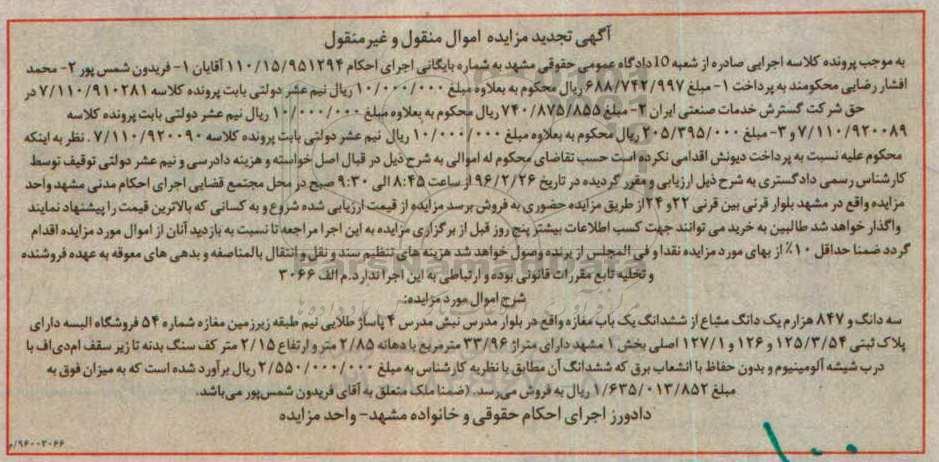 آگهی تجدید مزایده اموال منقول و غیرمنقول
به موجب پرونده کلاسه اجرایی صادره از شعبه 10 دادگاه عمومی حقوقی مشهد به شماره بایگانی اجرای احکام ۱۱۰/۱۵/۹۵۱۲۹۴ آقایان ۱- فریدون شمس پور ۲- محمد
افشار رضایی محکومند به پرداخت ۱- مبلغ ۶۸۸/۷۴۲/۹۹۷ ریال محکوم به بعلاوه مبلغ ۱۰/۰۰۰/۰۰۰ ریال نیم عشر دولتی بابت پرونده کلاسه ۷/۱۱۰/۹۱۰۲۸۱ در
حق شرکت گسترش خدمات صنعتی ایران ۲- مبلغ ۷۴۰/۸۷۵/۸۵۵ ریال محکوم به بعلاوه مبلغ ۱۰/۰۰۰/۰۰۰ ریال نیم عشر دولتی بابت پرونده کلاسه
۷/۱۱۰/۹۲۰۰۸۹ و ۳- مبلغ ۲۰۵/۳۹۵/۰۰۰ ریال محکوم به بعلاوه مبلغ ۱۰/۰۰۰/۰۰۰ ریال نیم عشر دولتی بابت پرونده کلاسه ۷/۱۱۰/۹۲۰۰۹۰. نظر به اینکه
محکوم علیه نسبت به پرداخت دیونش اقدامی نکرده است حسب تقاضای محکوم له اموالی به شرح ذیل در قبال اصل خواسته و هزینه دادرسی و نیم عشر دولتی توقیف توسط
کارشناس رسمی دادگستری به شرح ذیل ارزیابی و مقرر گردیده در تاریخ ۹۶/۲/۲۶ از ساعت ۸:۴۵ الی ۹:۳۰ صبح در محل مجتمع قضایی اجرای احکام مدنی مشهد واحد
مزایده واقع در مشهد بلوار قرنی بین قرنی ۲۲ و ۲۴ از طریق مزایده حضوری به فروش برسد مزایده از قیمت ارزیابی شده شروع و به کسانی که بالاترین قیمت را پیشنهاد نمایند
واگذار خواهد شد طالبین به خرید می توانند جهت کسب اطلاعات بیشتر پنج روز قبل از برگزاری مزایده به این اجرا مراجعه تا نسبت به بازدید آنان از اموال مورد مزایده اقدام
گردد ضمنا حداقل ۱۰٪ از بهای مورد مزایده نقدا و فی المجلس از برنده وصول خواهد شد هزینه های تنظیم سند و نقل و انتقال بالمناصفه و بدهی های معوقه به عهده فروشنده
و تخلیه تابع مقررات قانونی بوده و ارتباطی به این اجرا ندارد.م الف ۳۰۶۶
شرح اموال مورد مزایده:
سه دانگ و ۸۴۷ هزارم یک دانگ مشاع از ششدانگ یک باب مغازه واقع در بلوار مدرس نبش مدرس ۴ پاساژ طلایی نیم طبقه زیرزمین مغازه شماره ۵۴ فروشگاه البسه دارای
پلاک ثبتی ۱۲۵/۳/۵۴ و ۱۲۶ و ۱۲۷/۱ اصلی بخش ۱ مشهد دارای متراژ ۳۳/۹۶ مترمربع با دهانه ۲/۸۵ متر و ارتفاع ۲/۱۵ متر کف سنگ بدنه تا زیر سقف ام‌دی‌اف با
درب شیشه آلومینیوم و بدون حفاظ با انشعاب برق که ششدانگ آن مطابق با نظریه کارشناس به مبلغ ۲/۵۵۰/۰۰۰/۰۰۰ ریال برآورد شده است که به میزان فوق به
مبلغ ۱/۶۳۵/۰۱۳/۸۵۲ ریال به فروش می‌رسد. (ضمنا ملک متعلق به آقای فریدون شمس‌پور می‌باشد.
دادورز اجرای احکام حقوقی و خانواده مشهد- واحد مزایده
۹۶۰۰۳۰۶۶/م